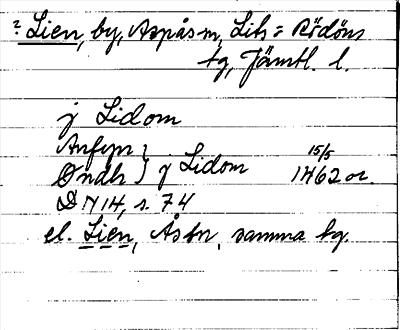 ? Lien, by, Aspås sn, Lits o Rödöns
tg, Jämtl. l.
j Lidom
Anfyn }
Øndh } j Lidom 15/5 1462 or.
DN 14, s. 74
el. Lien, Ås sn, samma tg.